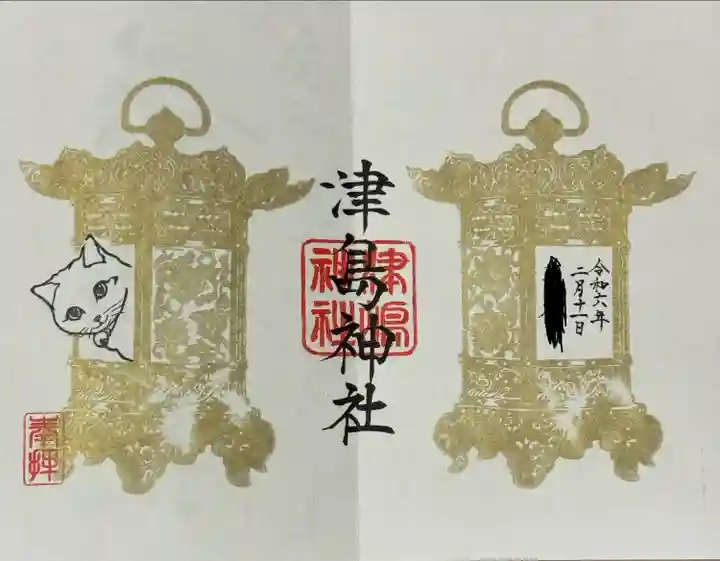 令和六年
二月十一日
津島神社
津島
神社
奉拝